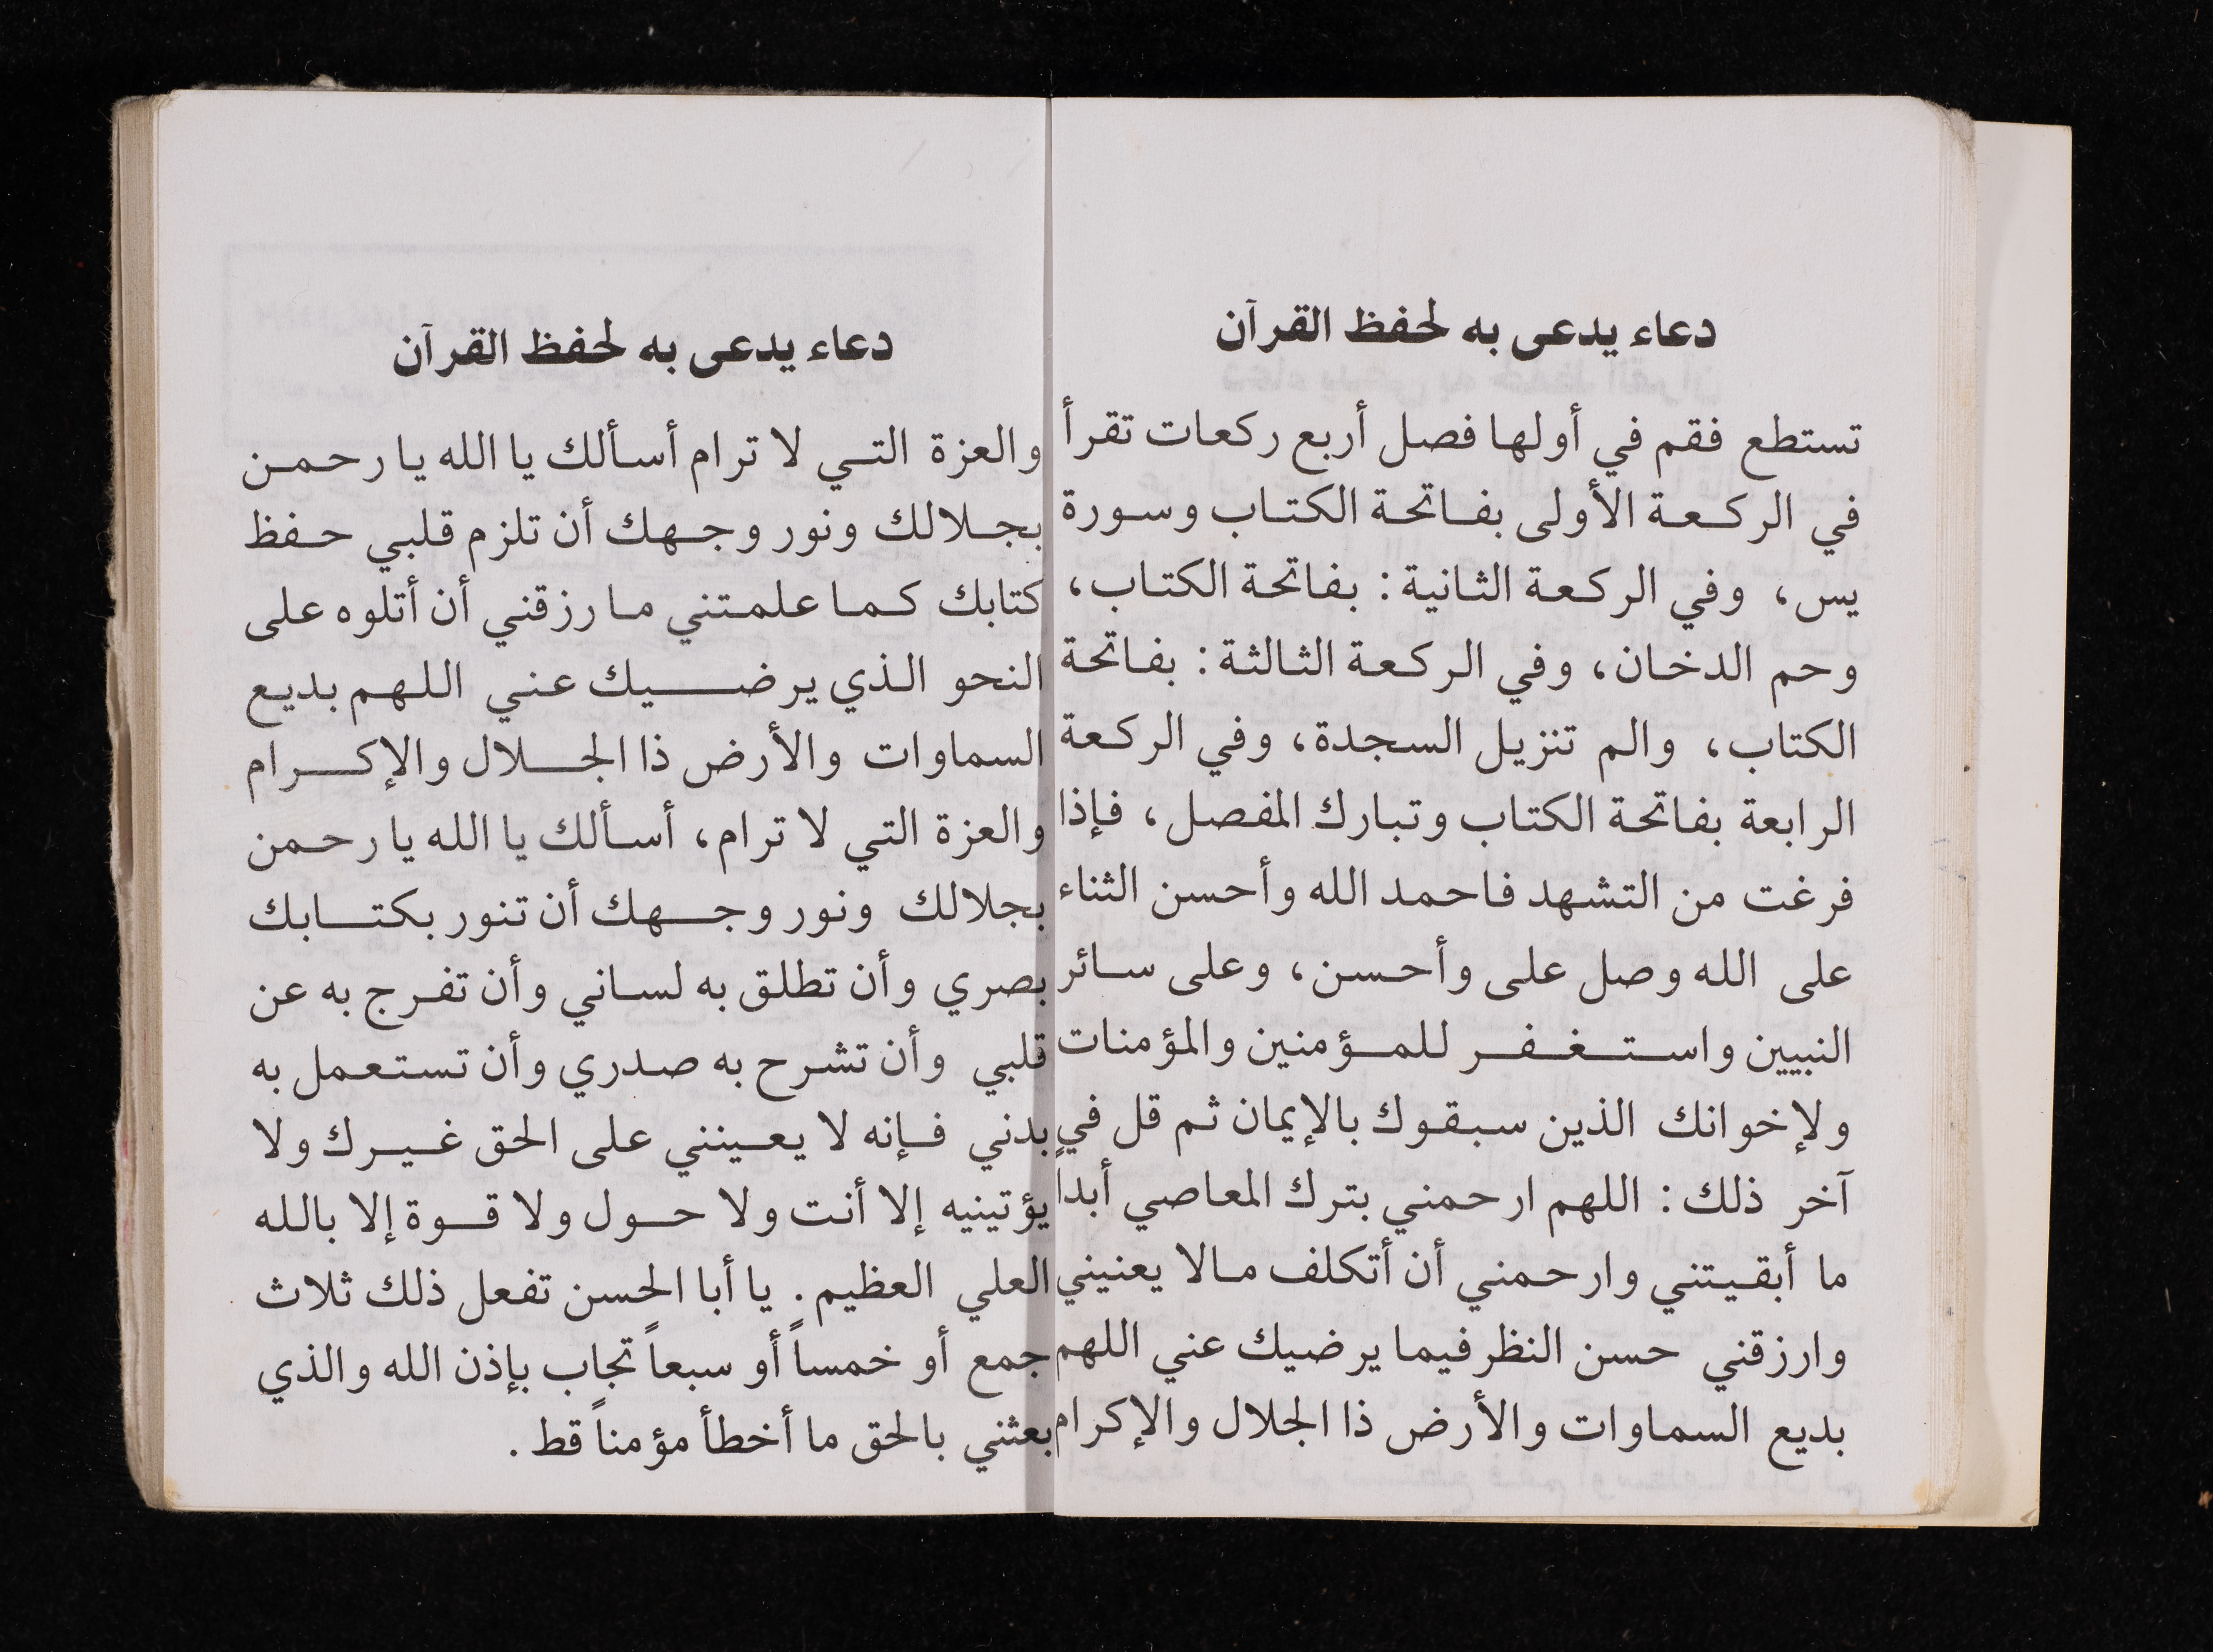 دعاء يدعى به لحفظ القرآن
تستطع فقم في أولها فصل أربع ركعات تقرأ
في الركعة الأولى بفاتحة الكتاب وسورة
يس، وفي الركعة الثانية: بفاتحة الكتاب،
وحم الدخان، وفي الركعة الثالثة: بفاتحة
الكتاب، والم تنزيل السجدة، وفي الركعة
الرابعة بفاتحة الكتاب وتبارك المفصل، فإذا
فرغت من التشهد فاحمد الله وأحسن الثناء
على الله وصل على وأحسن، وعلى سائر
النبيين واستغفر للمؤمنين والمؤمنات
ولإخوانك الذين سبقوك بالإيمان ثم قل في
آخر ذلك: اللهم ارحمني بترك المعاصي أبداً
ما أبقيتني وارحمني أن أتكلف مالا يعنيني
وارزقني حسن النظر فيما يرضيك عني اللهم
بديع السماوات والأرض ذا الجلال والإكرام
دعاء يدعى به لحفظ القرآن
والعزة التي لا ترام أسألك يا الله يا رحمن
بجلالك ونور وجهك أن تلزم قلبي حفظ
كتابك كما علمتني ما رزقني أن أتلوه على
النحو الذي يرضيك عني اللهم بديع
السماوات والأرض ذا الجلال والإكرام
والعزة التي لا ترام، أسألك يا الله يا رحمن
بجلالك ونور وجهك أن تنور بكتابك
بصري وأن تطلق به لساني وأن تفرج به عن
قلبي وأن تشرح به صدري وأن تستعمل به
بدني فإنه لا يعينني على الحق غيرك ولا
يؤتينيه إلا أنت ولا حول ولا قوة إلا بالله
العلي العظيم. يا أبا الحسن تفعل ذلك ثلاث
جمع أو خمساً أو سبعاً تجاب بإذن الله والذي
بعثني بالحق ما أخطأ مؤمناً قط.